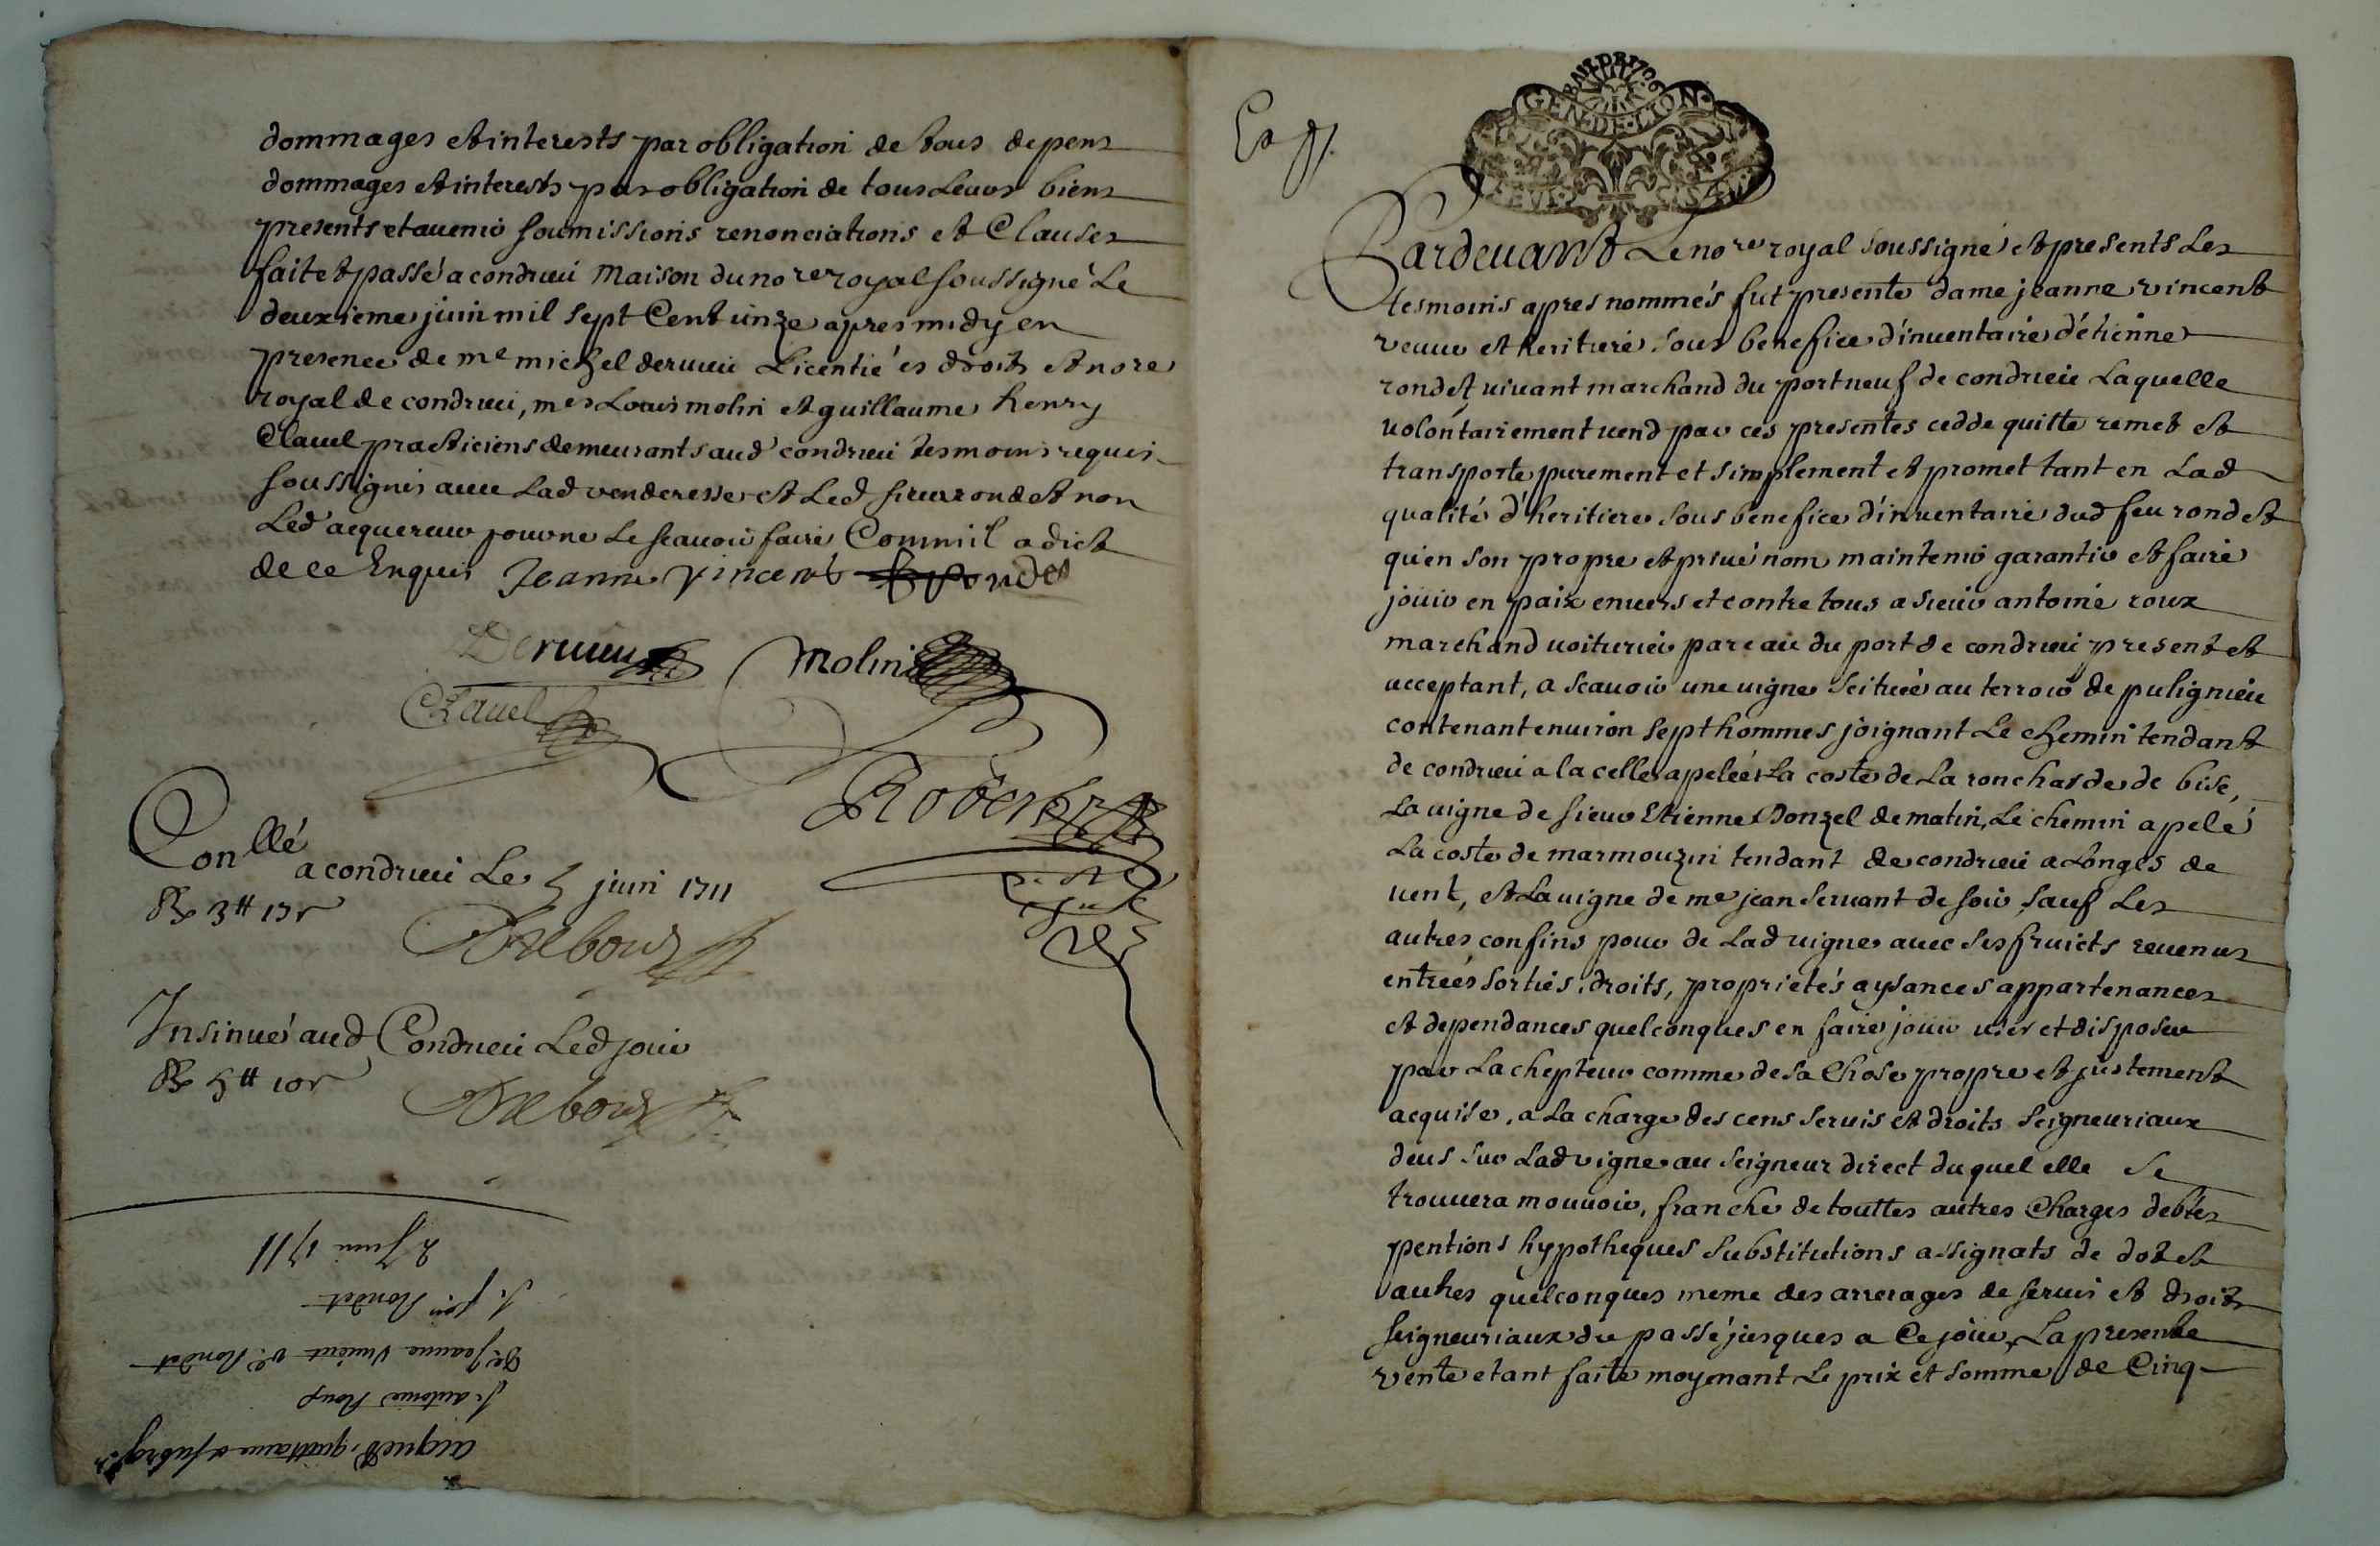 dommages et interests par obligation de tous depens
dommages et interests par obligation de tous leurs biens
presents et auenir soumissions renonciations et Clauses
fait et passé a condrieu maison du nore royal soussigné Le
deuxieme juin mil sept Cent unze apres midy en
presence de me michel deruieu Licentié es droits et nore
royal de condrieu, mes Louis molin et guillaume henry
Clauel practiciens demeurants aud condrieu tesmoins requis
soussignés auec Lad venderesse et Led sieur rondet non
Led acquereur pour ne le scauoir faire Comm'il a dict
de ce Enquis Jeanne vincent rondet
Deruieu Molin
Clauel
Robert
Conllé
a condrieu Le 5 juin 1711
Rx 3tt 13s
Insinué aud Condrieu Led jour
Rx 5tt 10s
2 Juin 1711
Sr Rondet
De Jeanne Vincent ve Rondet
Sr antoine Roux
acquet, quittance et subrog
GEN DE LYON
Pardeuant Le nore royal soussigné et presents Les
tesmoins apres nommés fut presente dame jeanne vincent
veuue et heritiere sous benefice d'inuentaire d'étienne
rondet viuant marchand du port neuf de condrieu Laquelle
volontairement vend par ces presentes cedde quitte remet et
transporte purement et simplement et promet tant en Lad
qualité d'heritiere sous benefice d'inuentaire dud feu rondet
qu'en son propre et priué nom maintenir garantir et faire
jouir en paix enuers et contre tous a sieur antoine roux
marchand voiturier par eau du port de condrieu present et
acceptant, a scauoir une vigne scituée au terroir de pulignieu
contenant enuiron sept hommes joignant Le chemin tendant
de condrieu a la celle apelée La coste de La roncharde de bise,
La vigne de sieur Etienne Donzel de matin, Le chemin apelé
La coste de marmouzin tendant de condrieu a Longes de
vent, et La vigne de me jean Seruant de soir, sauf Les
autres confins pour de Lad vigne auec ses fruicts reuenus
entrées sorties, droits, proprietés aysances appartenances
et dependances quelconques en faire jouir user et disposer
par Lachepteur comme de sa Chose propre et justement
acquise, a La charge des cens seruis et droits seigneuriaux
deus sur Lad vigne au seigneur direct duquel elle se
trouuera mouuoir, franche de touttes autres Charges debtes
pentions hypotheques substitutions assignats de dot et
autres quelconques meme des arrerages de seruis et droits
seigneuriaux du passé jusques a Ce jour, La presente
vente etant faite moyenant Le prix et somme de Cinq